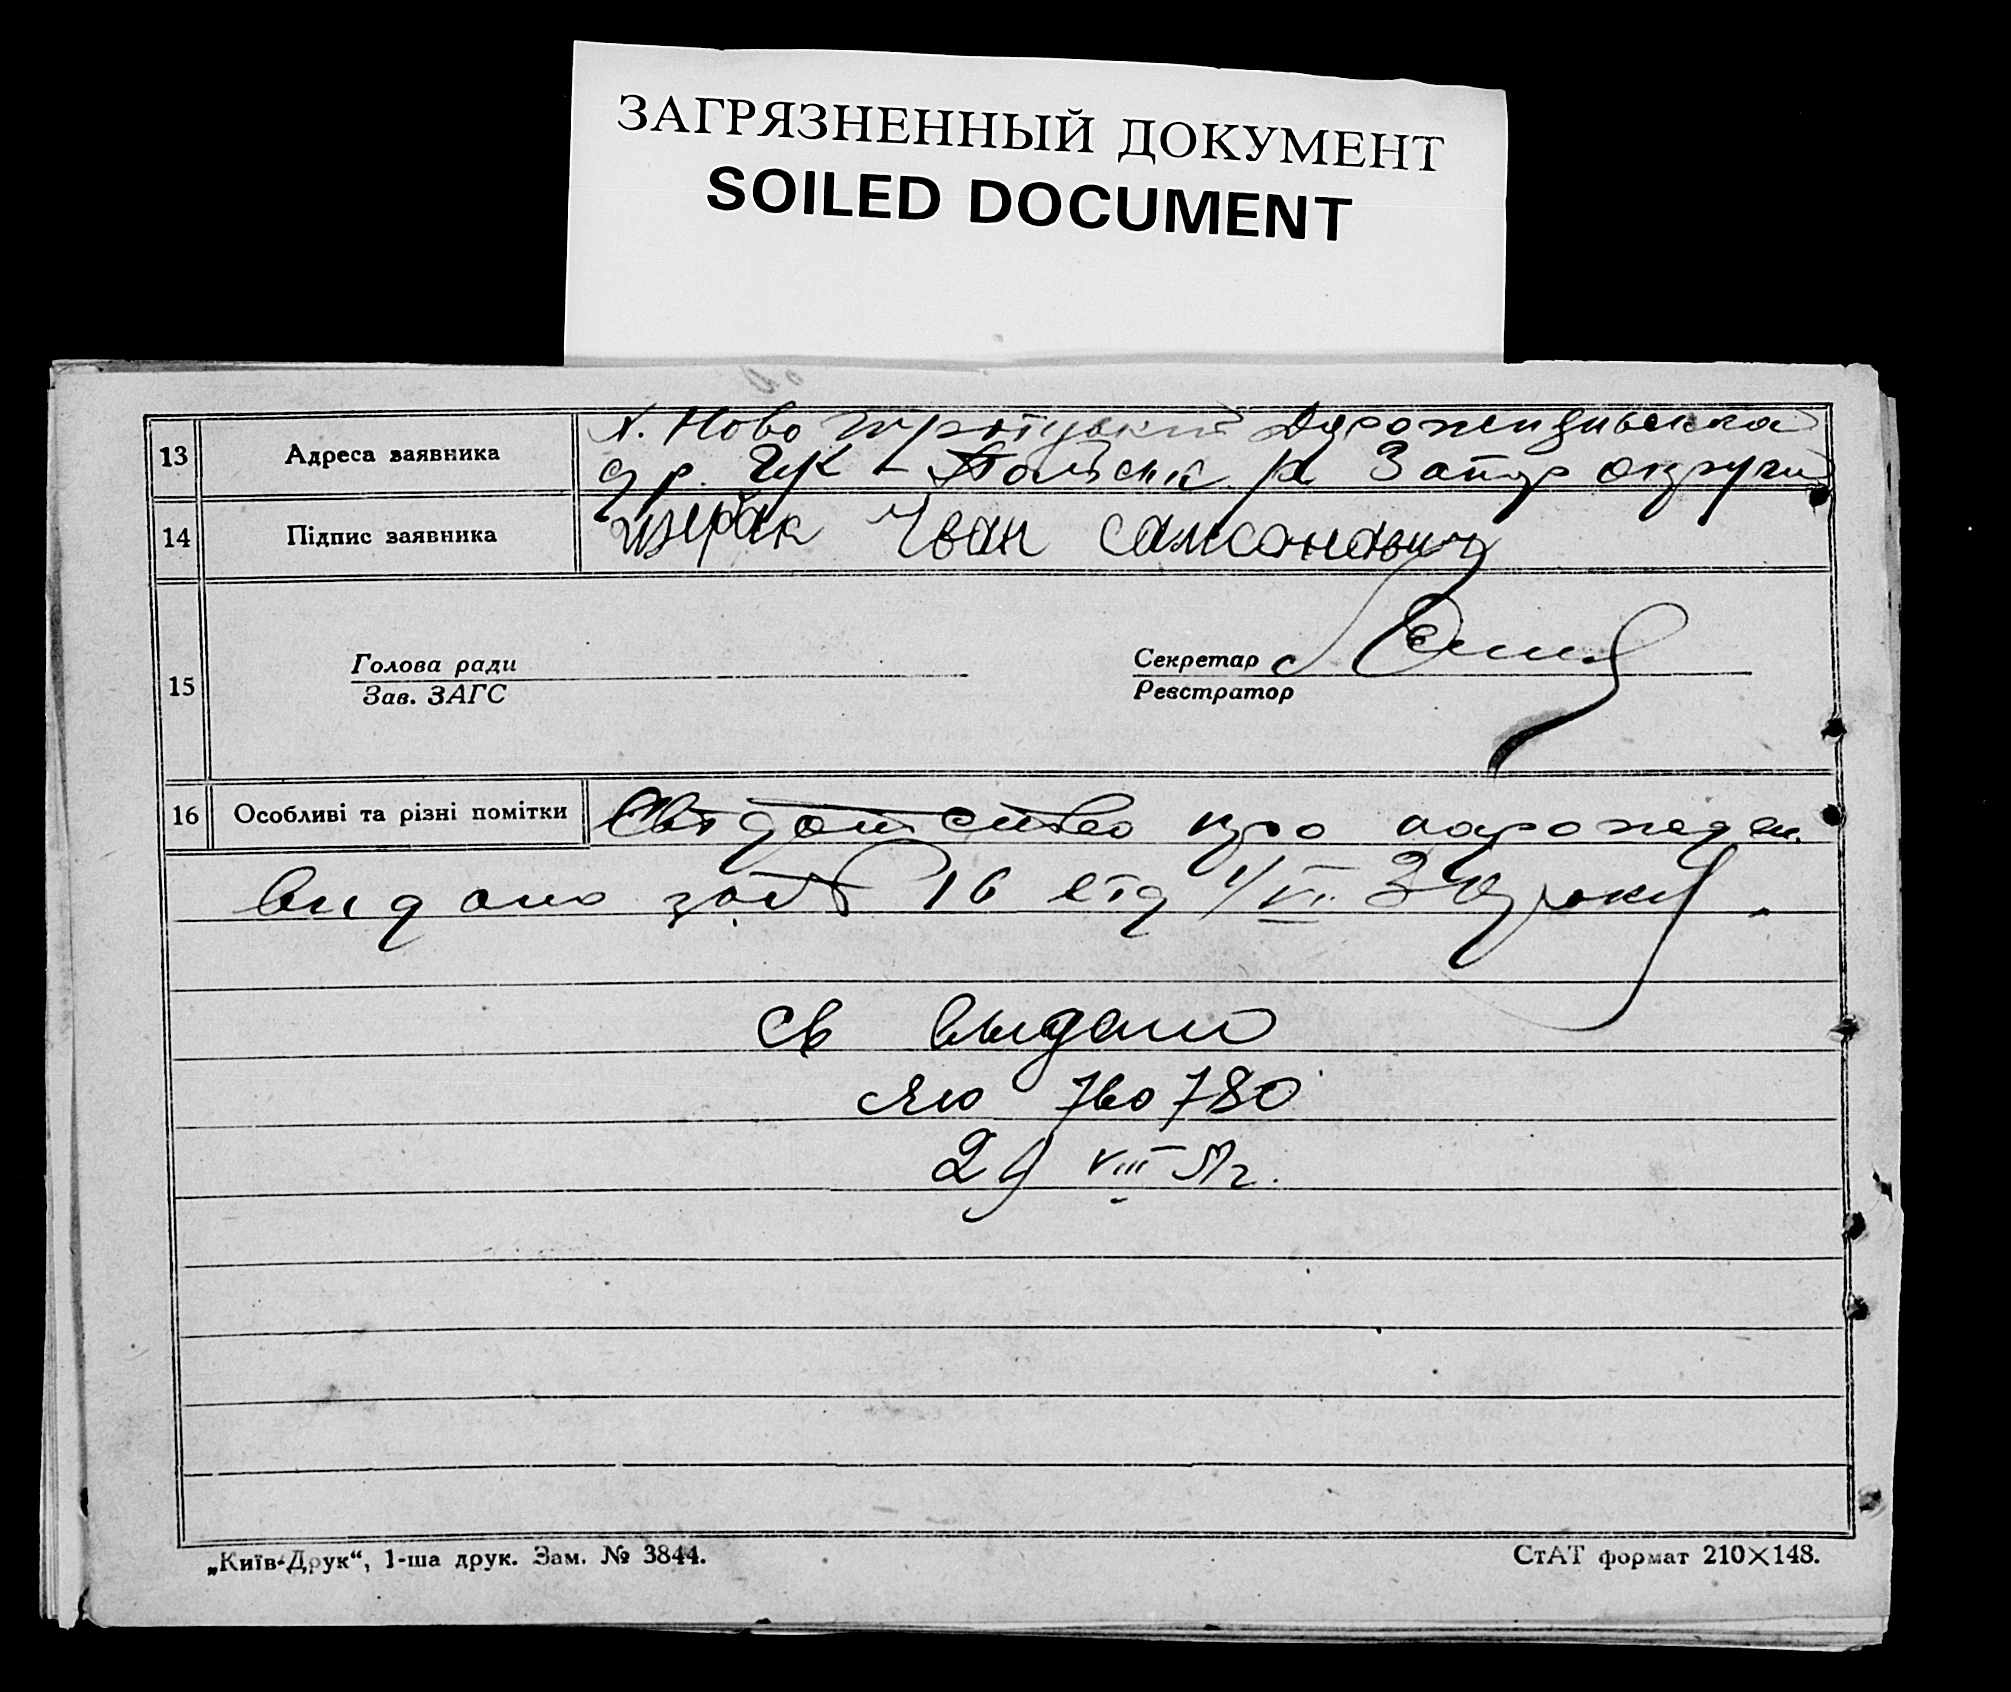 ЗАГРЯЗНЕННЫЙ ДОКУМЕНТ
SOILED DOCUMENT
13 Адреса заявника х. Ново
р. Запор округи
14 Підпис заявника Іван Самсонович
15 Голова ради
Зав. ЗАГС
Секретар
Реєстратор
16 Особливі та різні помітки Свідотство про народжен.
видано за № 16 від 1/VI. 30 року.
св выдано
ЯЮ 760780
29 VIII 51г.
„Київ-Друк“, 1-ша друк. Зам. № 3844.
СтАТ формат 210×148.